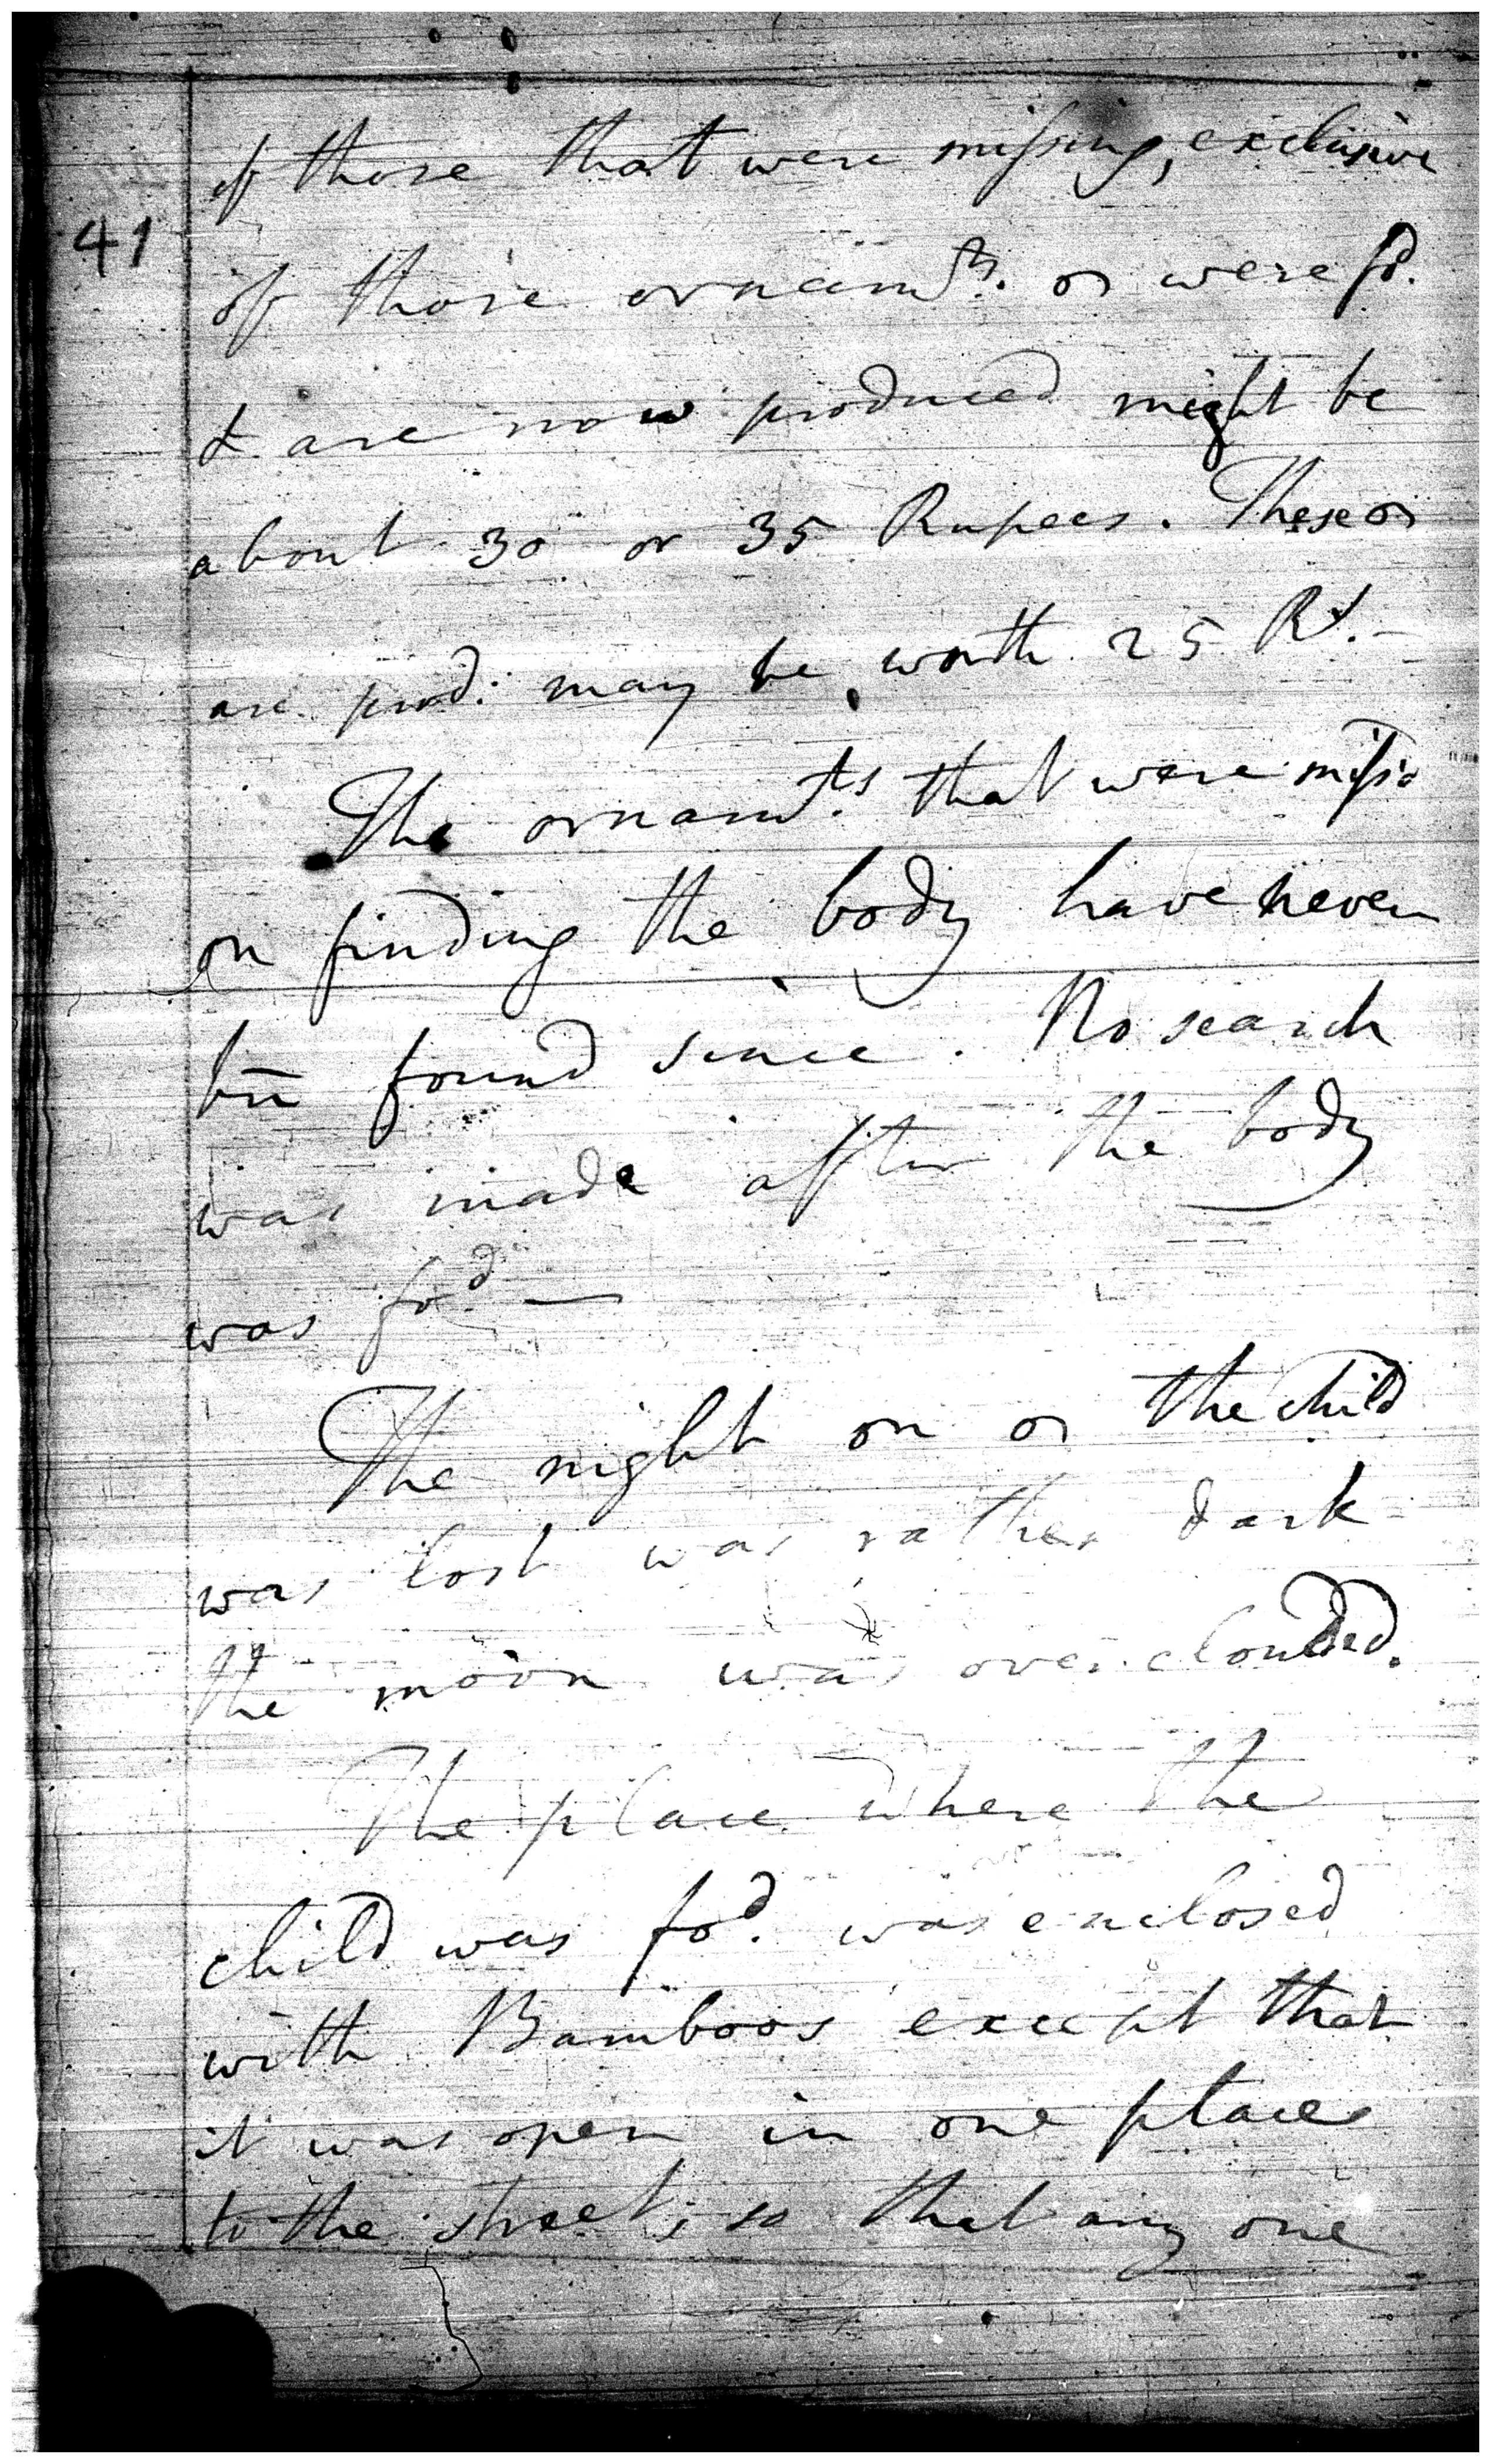 of those that were missing, exclusive
41
of those ornamts. or were fd.
& are now produced might be
about 30 or 35 Rupees. These or
are prod: may be worth 25 Rs. –
The ornamts. that were missg
on finding the body have never
bn found since. No search
was made after the body
was fod. —
The night on or the child
was lost was rather dark
the moon was overclouded.
The place where the
child was fod. was enclosed
with Bamboos except that
it was open in one place
to the street, so that any one